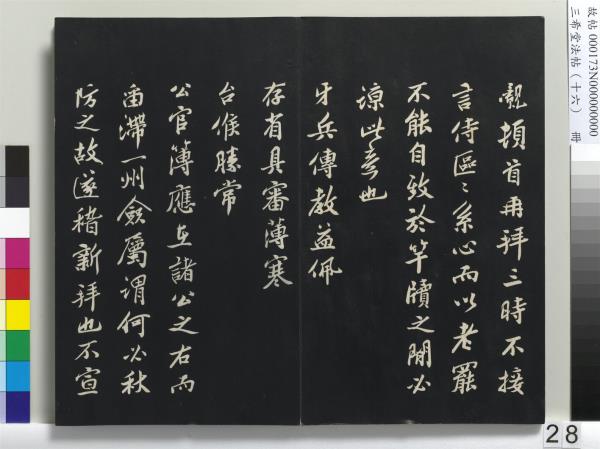 覿頓首再拜三時不接
言侍區〻系心而以老罷
不能自致於竿牘之間必
諒此意也
牙兵傳教益佩
存省具審薄寒
台候勝常
公官簿應在諸公之右而
畱滯一州僉屬謂何必秋
防之故遂稽新拜也不宣
故帖000173N000000000
三希堂法帖(十六) 冊
28